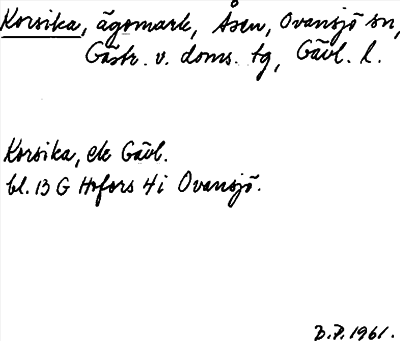 Korsika, ägomark, Åsen, Ovansjö sn,
Gästr. v. doms. tg, Gävl. l.
Korsika, ek Gävl.
bl. 13 G Hofors 4i Ovansjö.
B.P. 1961.